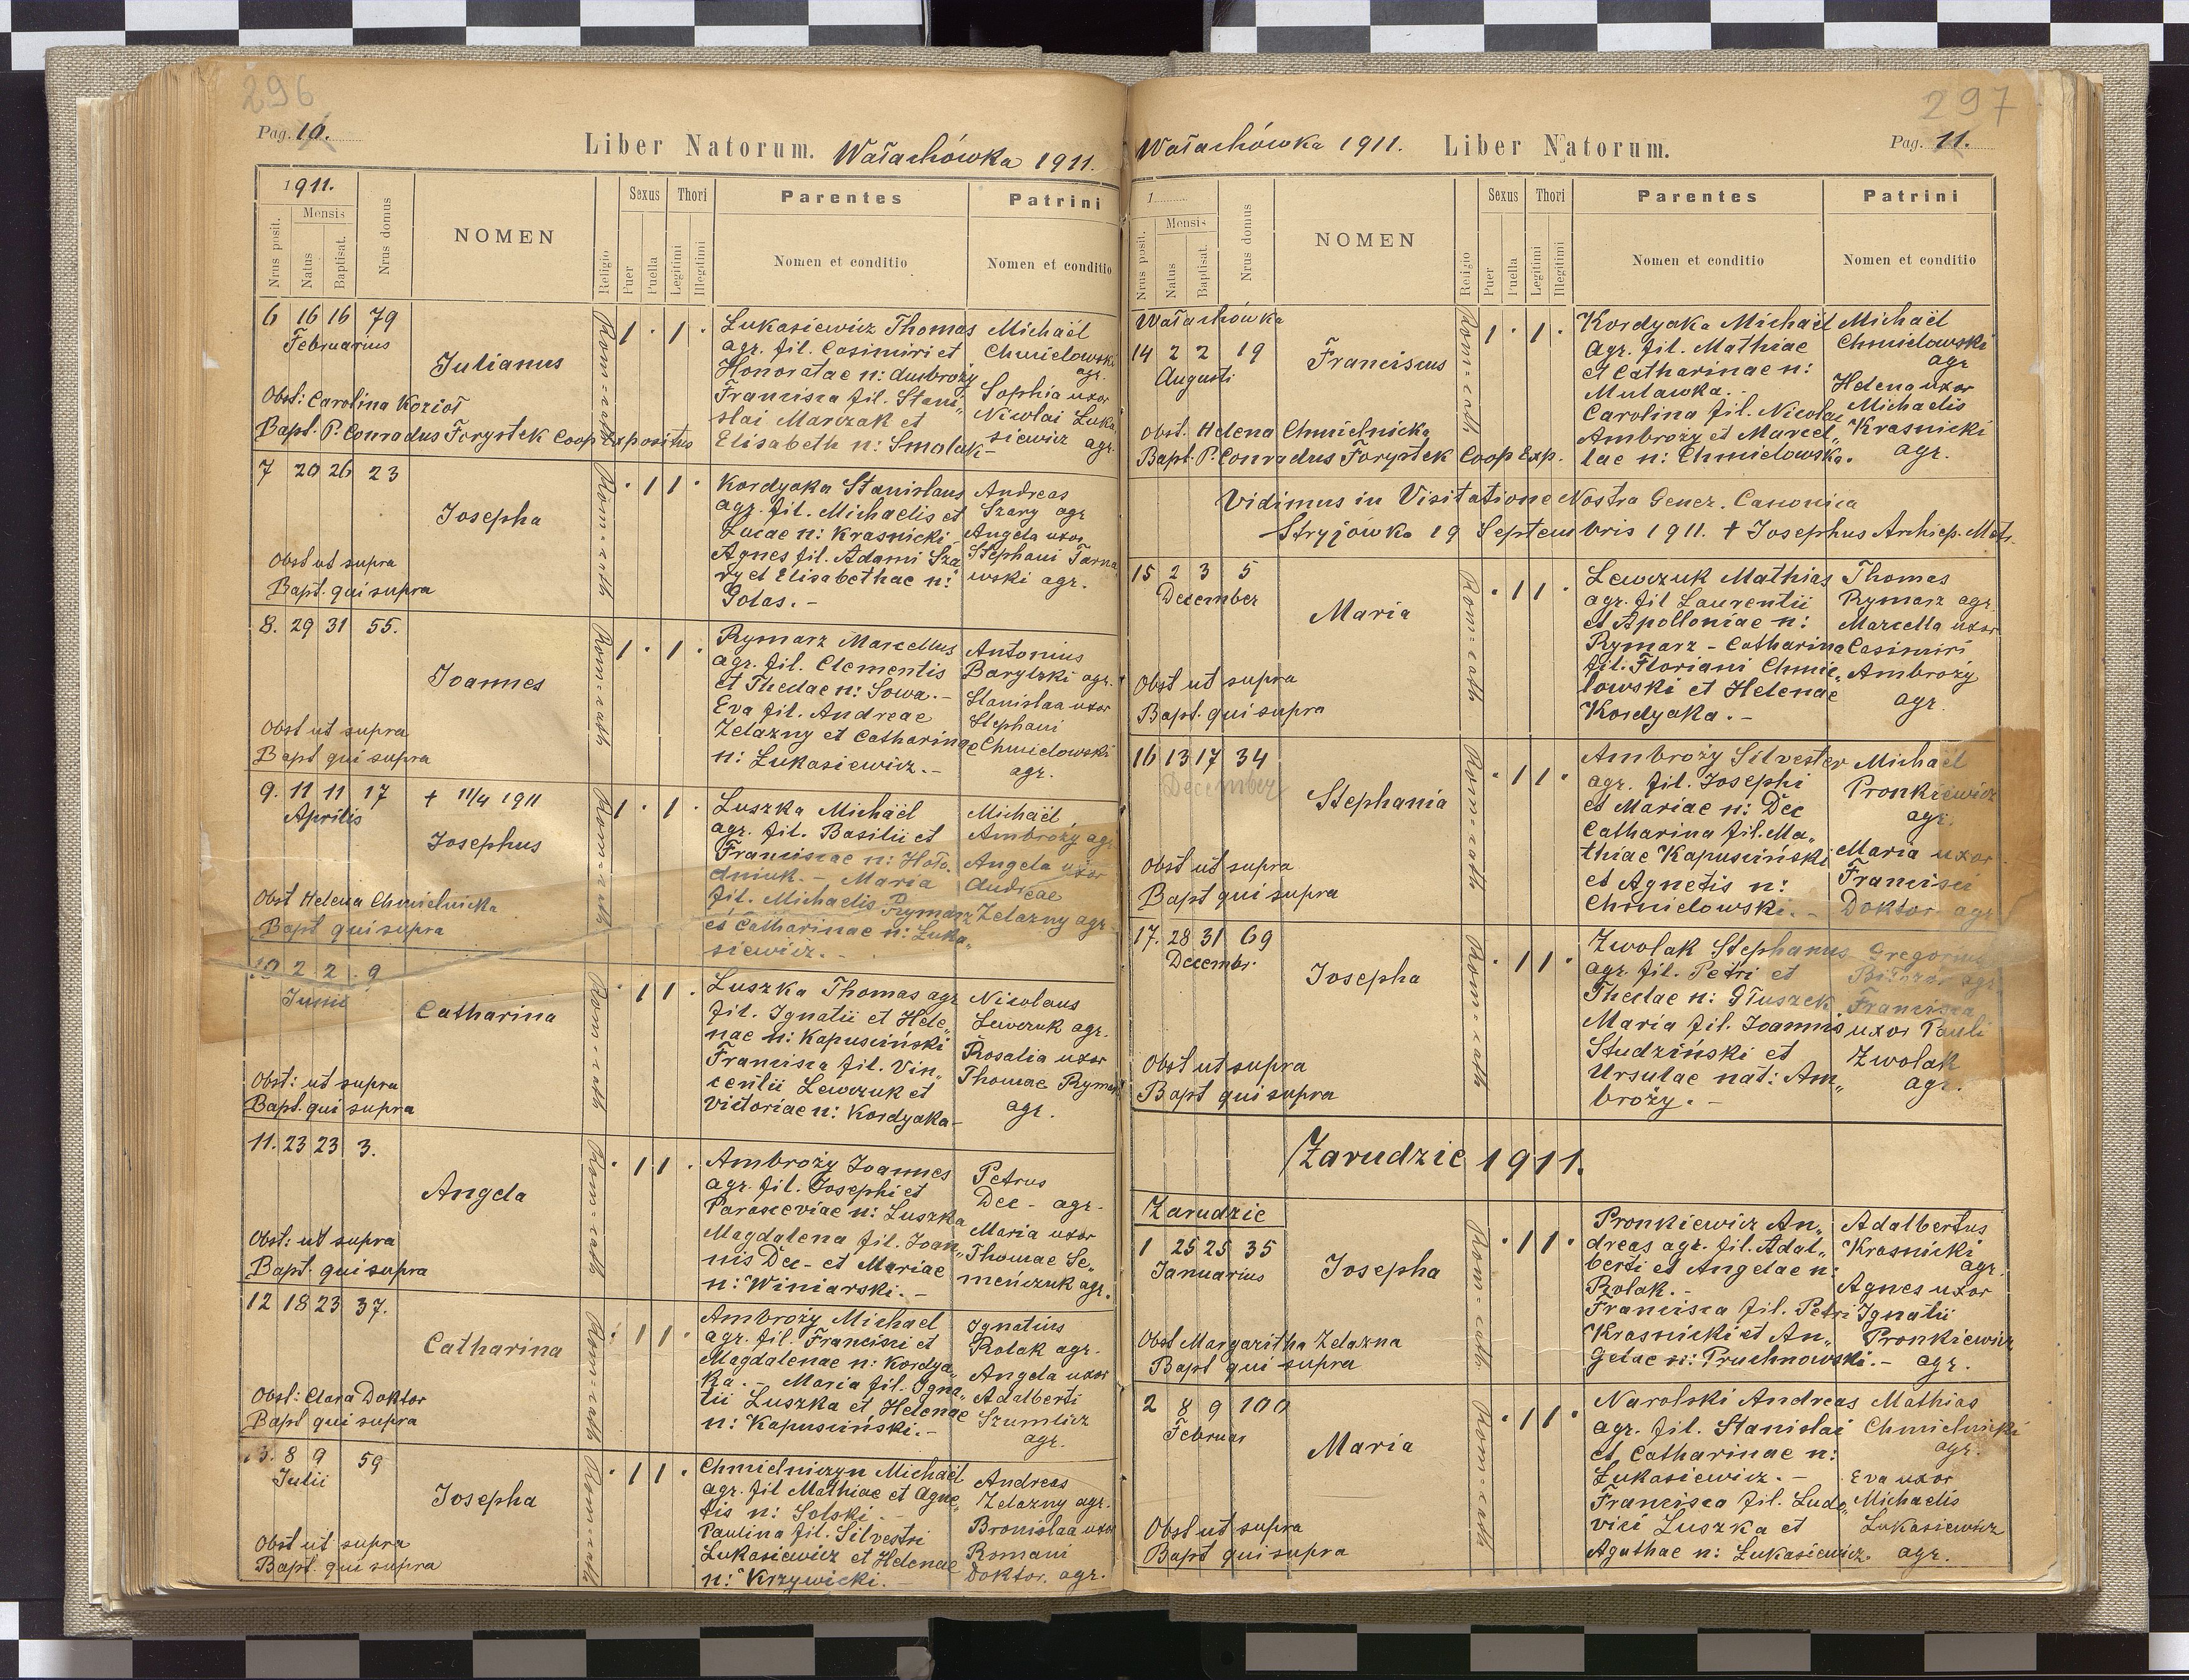 296
Pag. 10.
Liber Natorum. Wałachówka 1911.
1911.
Nrus posit.
Mensis
Natus
Baptisat.
Nrus domus
NOMEN
Religio
Sexus
Puer
Puella
Thori
Legitimi
Illegitimi
Parentes
Nomen et conditio
Patrini
Nomen et conditio
6 16 16 79
Februarius
Julianus
Obst: Carolina Kozioł
Bapt. P. Conradus Forystek Coop Expositus
Rom=cath
1 . 1 .
Lukasiewicz Thomas
agr. fil. Casimiri et
Honoratae n: Ambroży
Francisca fil. Stani„
slai Marczak et
Elisabeth n: Smolak-
Michaël
Chmielowski
agr.
Sophia uxor
Nicolai Luka
siewicz agr.
7 20 26 23
Josepha
Obst ut supra
Bapt. qui supra
Rom=cath
. 1 1 .
Kordyaka Stanislaus
agr. fil. Michaelis et
Luciae n: Krasnicki
Agnes fil. Adami Sza
ry et Elisabethae n:
Golas.-
Andreas
Szary agr
Angela uxor
Stephani Tarna
wski agr.
8. 29 31 55.
Joannes
Obst ut supra
Bapt qui supra
Rom=cath
1 . 1 .
Rymarz Marcellus
agr. fil. Clementis
et Theclae n: Sowa.-
Eva fil. Andreae
Żelazny et Catharinae
n: Łukasiewicz.-
Antonius
Barylzki agr.
Stanislaa uxor
Stephani
Chmielowski
agr.
9. 11 11 17 + 11/4 1911
Aprilis
Josephus
Obst Helena Chmielnicka
Bapt qui supra
Rom=cath
1 . 1 .
Luszka Michaël
agr. fil. Basilii et
Franciscae n: Hoło„
dniuk.- Maria
fil. Michaelis Rymarz
et Catharinae n: Łuka„
siewicz.-
Michaël
Ambroży agr
Angela uxor
Andreae
Żelazny agr.
10 2 2 9
Junii
Catharina
Obst: ut supra
Bapt. qui supra
Rom=cath
. 1 1 .
Luszka Thomas agr
fil. Ignatii et Hele„
nae n: Kapusciński
Francisca fil. Vin„
centii Lewczuk et
Victoriae n: Kordyaka-
Nicolaus
Lewczuk agr.
Rosalia uxor
Thomae Rymarz
agr.
11. 23 23 3.
Angela
Obst: ut supra
Bapt. qui supra
Rom=cath
. 1 1 .
Ambroży Joannes
agr. fil. Josephi et
Parasceviae n: Luszka
Magdalena fil. Joan„
nis Dec- et Mariae
n: Winiarski.-
Petrus
Dec - agr.
Maria uxor
Thomae Se„
meńczuk agr.
12 18 23 37.
Catharina
Obst: Clara Doktor
Bapt qui supra
Rom=cath
. 1 1 .
Ambroży Michael
agr. fil. Francisci et
Magdalenae n: Kordya„
ka.- Maria fil. Igna„
tii Luszka et Helenae
n: Kapusciński.-
Ignatius
Rolak agr.
Angela uxor
Adalberti
Szumlicz
agr.
13. 8 9 59
Julii
Josepha
Obst ut supra
Bapt. qui supra
Rom=cath
. 1 1 .
Chmielniczyn Michaël
agr. fil Mathiae et Agne„
tis n: Solski.-
Paulina fil. Silvestri
Lukasiewicz et Helenae
n: Krzywicki.-
Andreas
Żelazny agr.
Bronislaa uxor
Romani
Doktor. agr.
297
Wałachówka 1911. Liber Natorum.
Pag. 11.
1
Nrus posit.
Mensis
Natus
Baptisat.
Nrus domus
NOMEN
Religio
Sexus
Puer
Puella
Thori
Legitimi
Illegitimi
Parentes
Nomen et conditio
Patrini
Nomen et conditio
Wałachówka
14 2 2 19
Augusti
Franciscus
Obst. Helena Chmielnicka
Bapt. P. Conradus Forystek Coop Exp.
Rom=cath
1 . 1 .
Kordyaka Michaël
agr. fil. Mathiae
et Catharinae n:
Mulawka.
Carolina fil. Nicolai
Ambroży et Marcel„
lae n: Chmielowska.
Michaël
Chmielowski
agr
Helena uxor
Michaelis
Krasnicki
agr.
Vidimus in Visitatione Nostra Gener. Canonica
Stryjówka 19 Septembris 1911. + Josephus Archiep. Metr.
15 2 3 5
December
Maria
Obst ut supra
Bapt. qui supra
Rom=cath
. 1 1 .
Lewczuk Mathias
agr. fil Laurentii
et Apolloniae n:
Rymarz - Catharina
fil. Floriani Chmie„
lowski et Helenae
Kordyaka.-
Thomas
Rymarz agr.
Marcella uxor
Casimiri
Ambroży
agr.
16 13 17 34
December
Stephania
Obst ut supra
Bapt qui supra
Rom=cath
. 1 1 .
Ambroży Silvester
agr. fil. Josephi
et Mariae n: Dec
Catharina fil. Ma„
thiae Kapusciński
et Agnetis n:
Chmielowski.-
Michaël
Pronkiewicz
agr.
Maria uxor
Francisci
Doktor agr
17. 28 31 69
Decembr.
Josepha
Obst ut supra
Bapt qui supra
Rom=cath
. 1 1 .
Zwolak Stephanus
agr. fil. Petri et
Theclae n: Głuszek.
Maria fil. Joannis
Studziński et
Ursulae nat: Am„
broży.-
Gregorius
agr.
Francisca
uxor Pauli
Zwolak
agr.
Zarudzie 1911.
Zarudzie
1 25 25 35
Januarius
Josepha
Obst Margaritha Żelazna
Bapt qui supra
Rom=cath
. 1 1 .
Pronkiewicz An„
dreas agr. fil. Adal„
berti et Angelae n:
Rolak.-
Francisca fil. Petri
Krasnicki et An„
gelae n: Pruchnowski.-
Adalbertus
Krasnicki
agr.
Agnes uxor
Ignatii
Pronkiewicz
agr.
2 8 9 100
Februar
Maria
Obst ut supra
Bapt qui supra
Rom=cath
. 1 1 .
Narolski Andreas
agr. fil. Stanislai
et Catharinae n:
Łukasiewicz.-
Francisca fil. Ludo„
vici Luszka et
Agathae n: Łukasiewicz.
Mathias
Chmielnicki
agr.
Eva uxor
Michaelis
Łukasiewicz
agr.